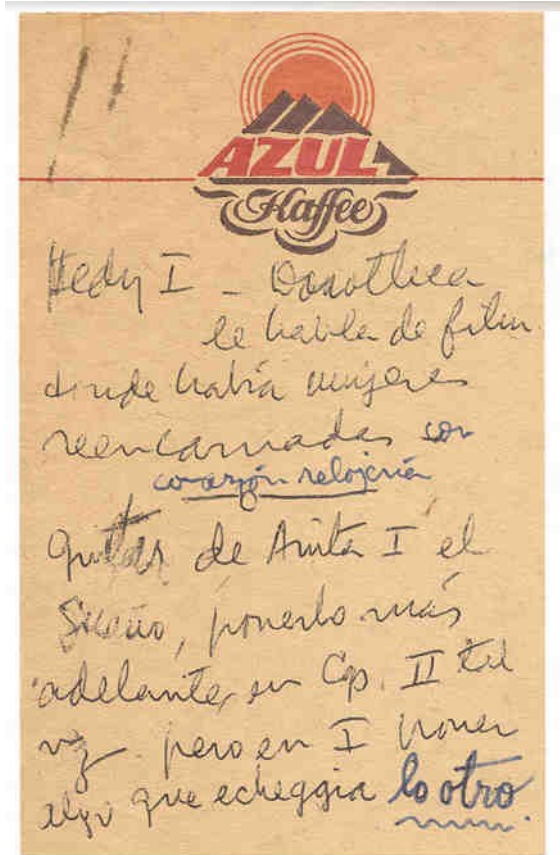 AZUL
Kaffee
Hedy I - Dorothea
le habla de film
donde había mujeres
reencarnadas con
corazón relojería
quitar de Anita I el
Sueño, ponerlo más
adelante, en Cap. II tal
vez. pero en I poner
algo que echeggia lo otro.